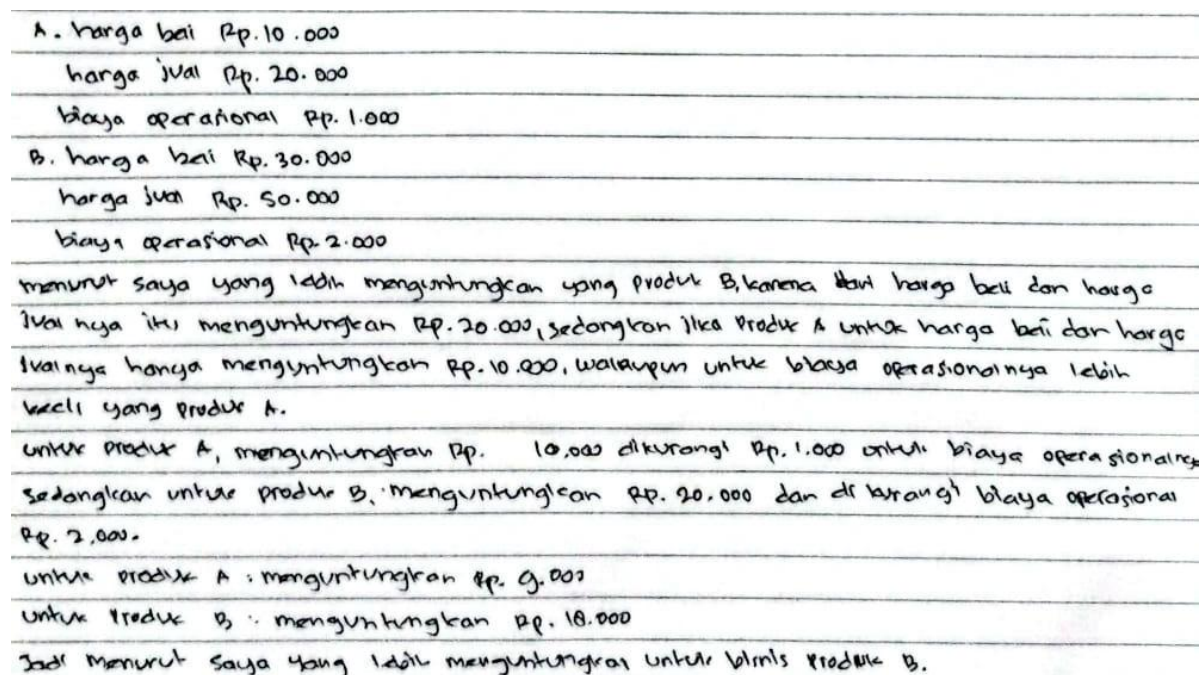 A. harga beli Rp. 10.000
harga jual Rp. 20.000
biaya operasional Rp. 1.000
B. harga beli Rp. 30.000
harga jual Rp. 50.000
biaya operasional Rp. 2.000
menurut saya yang lebih menguntungkan yang produk B, karena dari harga beli dan harga
jual nya itu menguntungkan Rp. 20.000, sedangkan jika produk A untuk harga beli dan harga
jualnya hanya menguntungkan Rp. 10.000, walaupun untuk biaya operasionalnya lebih
kecil yang produk A.
untuk produk A, menguntungkan Rp. 10.000 dikurangi Rp. 1.000 untuk biaya operasionalnya
sedangkan untuk produk B, menguntungkan Rp. 20.000 dan di kurangi biaya operasional
Rp. 2.000.
untuk produk A : menguntungkan Rp. 9.000
untuk produk B : menguntungkan Rp. 18.000
Jadi menurut saya yang lebih menguntungkan untuk bisnis produk B.